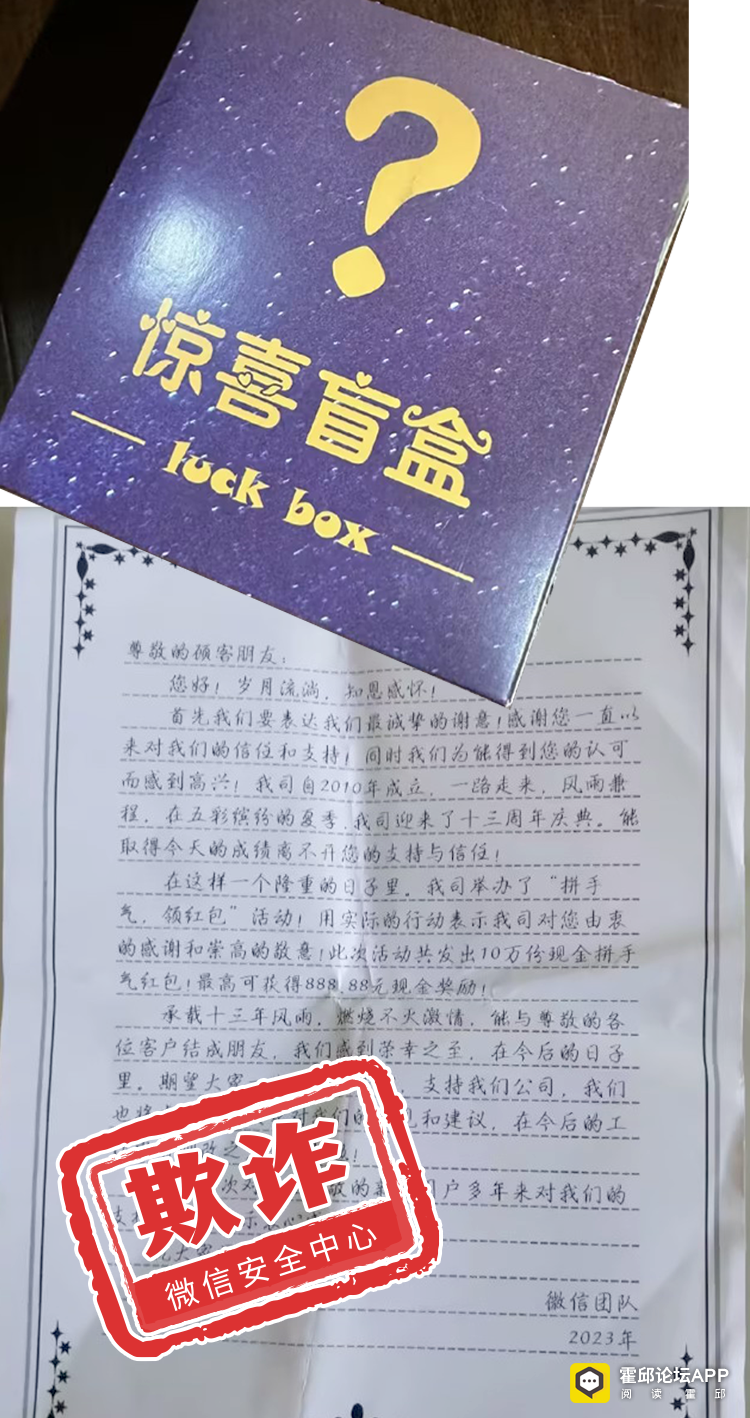 ?
惊喜盲盒
luck box
尊敬的顾客朋友：
您好！岁月流淌，知恩感怀！
首先我们要表达我们最诚挚的谢意！感谢您一直以
来对我们的信任和支持！同时我们为能得到您的认可
而感到高兴！我司自2010年成立，一路走来，风雨兼
程，在五彩缤纷的夏季，我司迎来了十三周年庆典。能
取得今天的成绩离不开您的支持与信任！
在这样一个隆重的日子里。我司举办了“拼手
气，领红包”活动！用实际的行动表示我司对您由衷
的感谢和崇高的敬意！此次活动共发出10万份现金拼手
气红包！最高可获得888.88元现金奖励！
承载十三年风雨，燃烧不火激情，能与尊敬的各
位客户结成朋友，我们感到荣幸之至，在今后的日子
里。期望大家 支持我们公司，我们
也将 对我们的 见和建议，在今后的工
次对 敬的新 用户多年来对我们的
支
欺诈
微信安全中心
微信团队
2023年
霍邱论坛APP
阅读霍邱